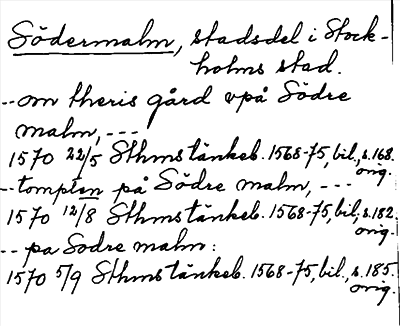 Södermalm, stadsdel i Stock-
holms stad.
-- om theris gård vpå Södre
malm, ---
1570 22/5 Sthms tänkeb. 1568-75, bil., s. 168.
orig.
-- tompten på Södre malm, ---
1570 12/8 Sthms tänkeb. 1568-75, bil., s. 182.
orig.
-- pa Sodre malm:
1570 5/9 Sthms tänkeb. 1568-75, bil., s. 185.
orig.